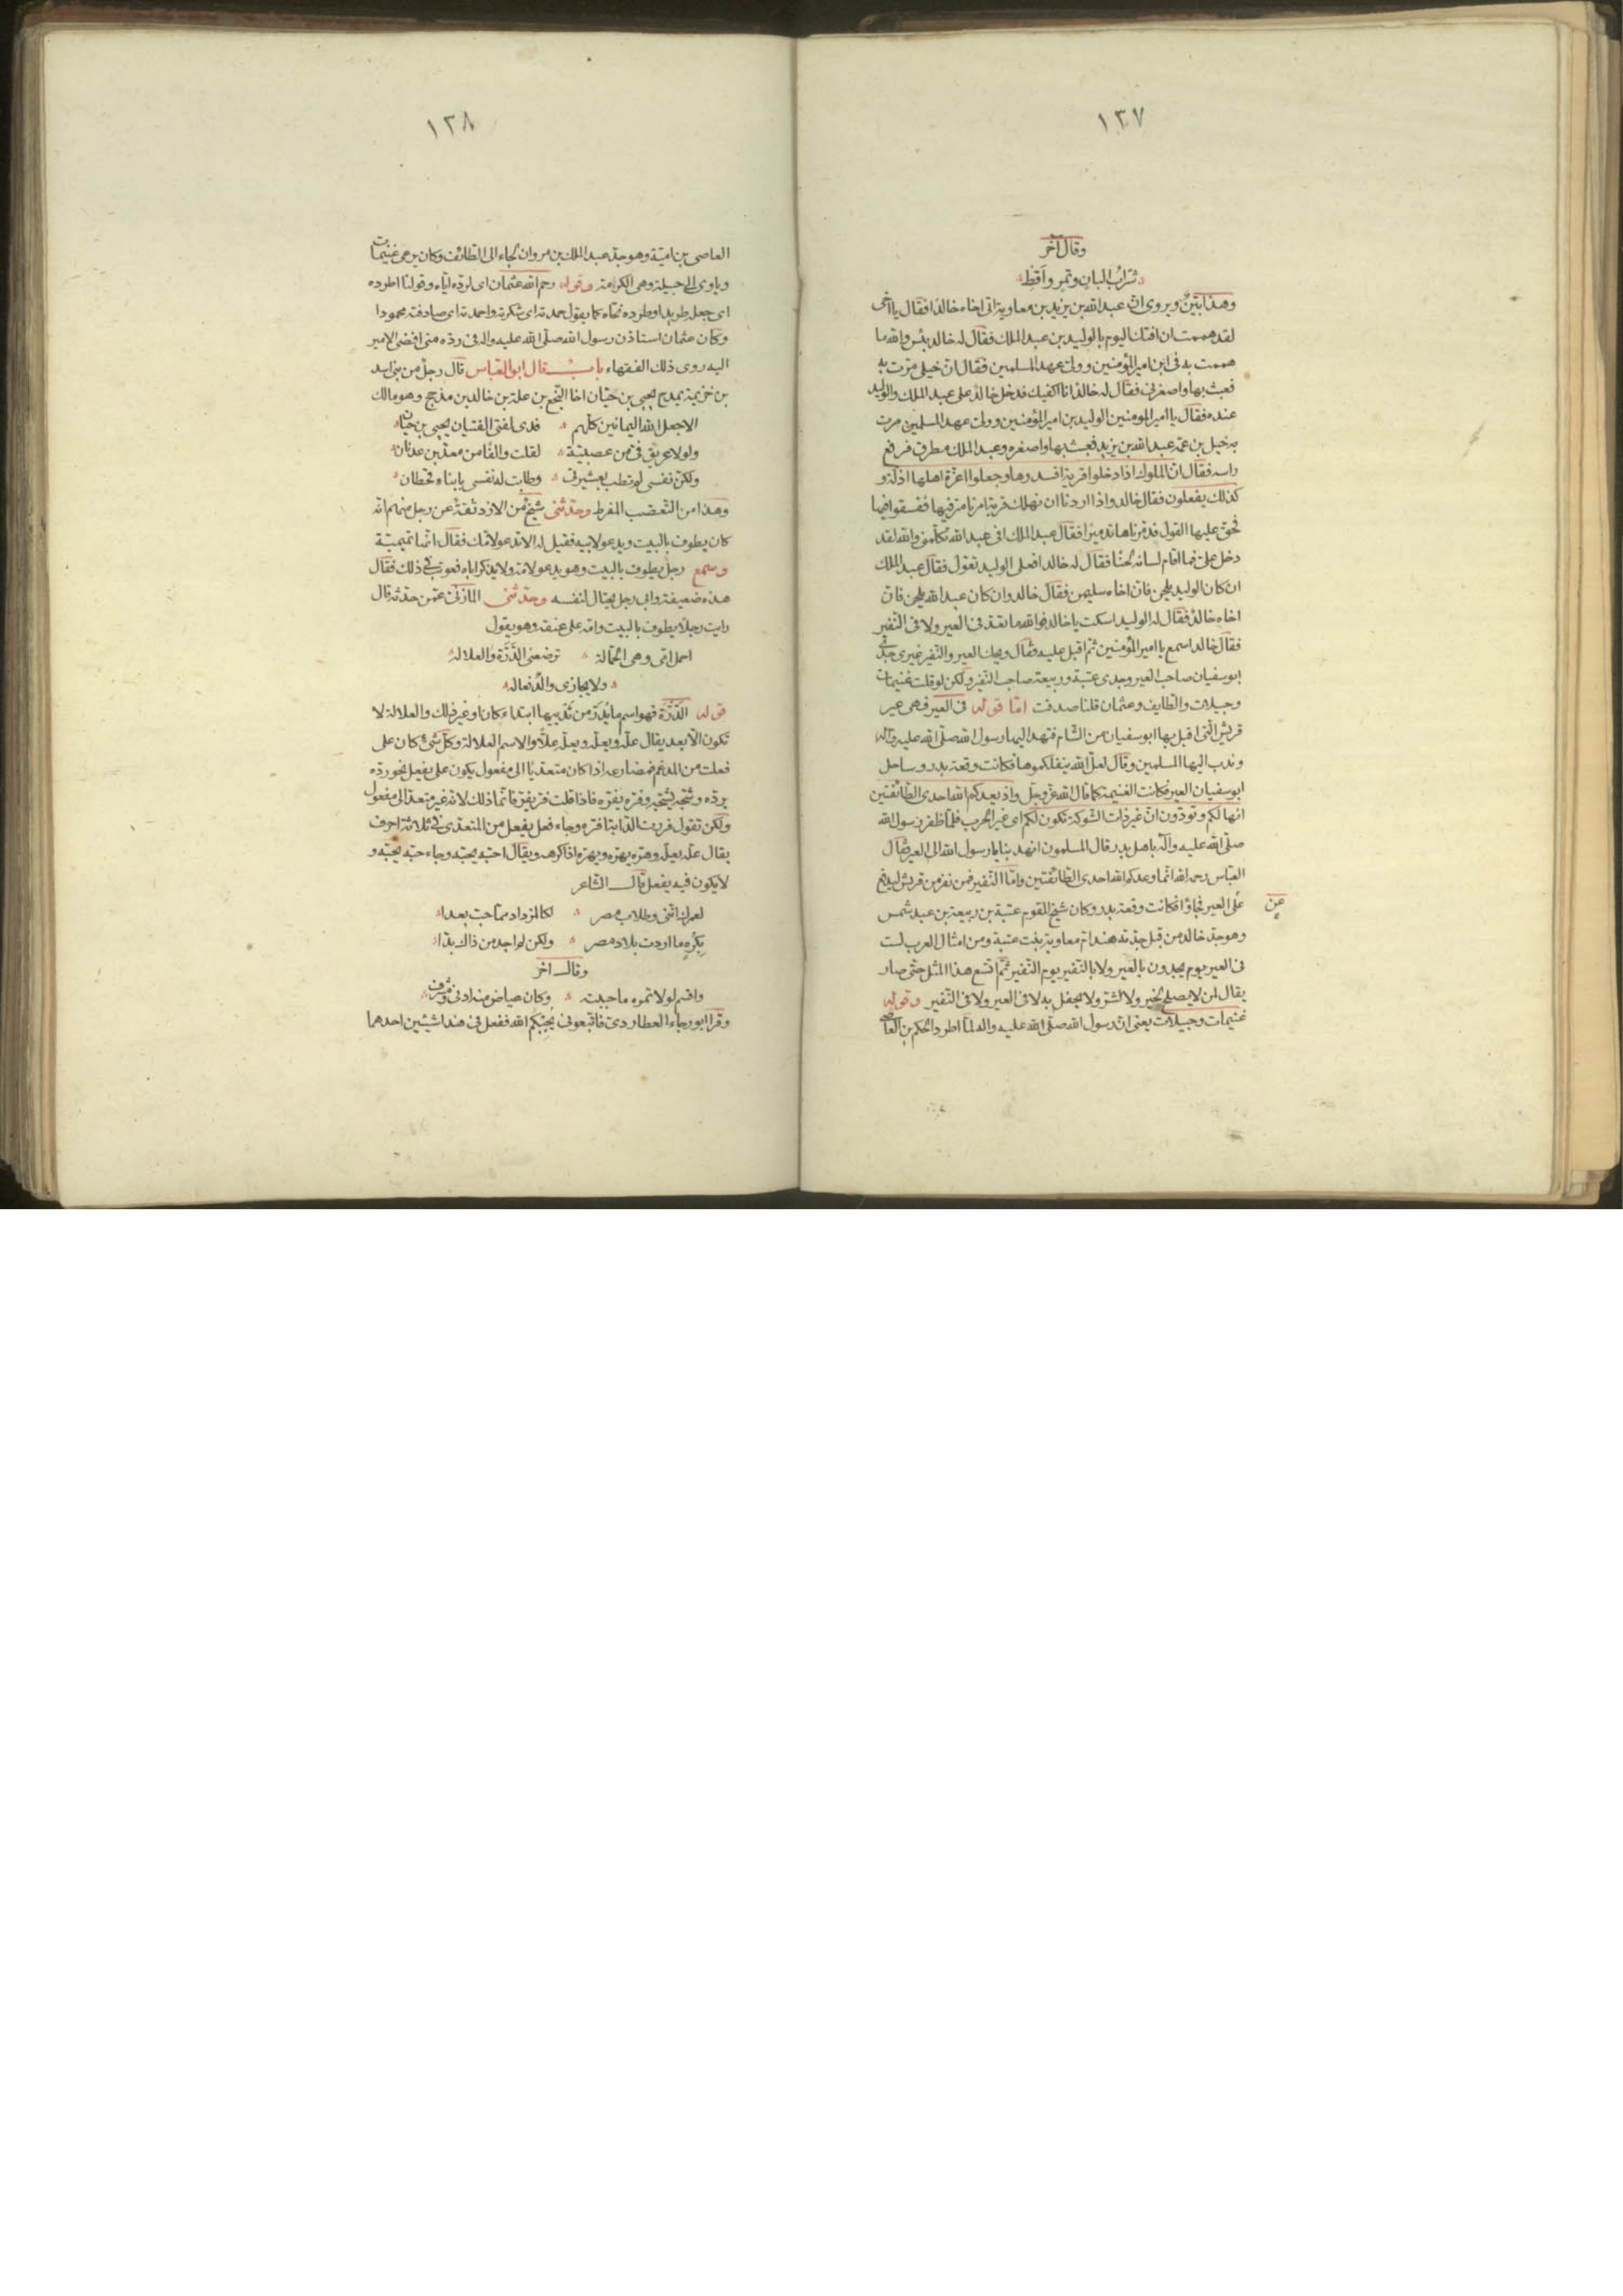 ١٣٧
وقال آخر
شراب البان وتمر واقط
وهذا بيّن ويروى ان عبد الله بن يزيد بن معاوية اتى اخاه خالدا فقال يا اخى
لقد هممت ان افتك اليوم بالوليد بن عبد الملك فقال له خالد بئس والله ما
هممت به فى ابن امير المؤمنين وولىّ عهد المسلمين فقال ان خيلى مرّت به
فعبث بها واصغرنى فقال له خالد انا اكفيك فدخل خالد على عبد الملك والوليد
عنده فقال يا امير المومنين الوليد بن امير المؤمنين وولىّ عهد المسلمين مرت
به خيل بن عمّه عبد الله بن يزيد فعبث بها واصغره وعبد الملك مطرق فرفع
راسه فقال ان الملوك اذا دخلوا قرية افسدوها وجعلوا اعزّة اهلها اذلّة و
كذلك يفعلون فقال خالد واذا اردنا ان نهلك قرية امرنا مترفيها ففسقوا فيها
فحق عليها القول فدمّرناها تدميرا فقال عبد الملك افى عبد الله تكلّمنى والله لقد
دخل علىّ فما اقام لسانه لحنًا فقال له خالد افعلى الوليد تعوّل فقال عبد الملك
ان كان الوليد يلحن فان اخاه سليمن فقال خالد وان كان عبد الله يلحن فان
اخاه خالدٌ فقال له الوليد اسكت يا خالد فوالله ما تعدّ فى العير ولا فى النفير
فقال خالد اسمع يا امير المؤمنين ثم اقبل عليه فقال ويحك العير والنفير غيرى جدّى
ابو سفيان صاحب العير وجدى عتبة وربيعة صاحب النفير ولكن لو قلت غنيمات
وجبيلات والطايف وعثمان قلنا صدقت امّا قوله فى العير فهى عير
قريش الّتى اقبل بها ابو سفيان من الشام فنهد اليها رسول الله صلّى الله عليه وآله
وندب اليها المسلمين وقال لعلّ الله ينفلكموها فكانت وقعة بدر وساحل
ابو سفيان العير فكانت الغنيمة كما قال الله عزّ وجلّ واذ يعدكم الله احدى الطائفتين
انها لكم وتودّون انّ غير ذات الشوكة تكون لكم اى غير الحرب فلمّا ظفر رسول الله
صلّى الله عليه وآله باهل بدر قال المسلمون انهد بنا يا رسول الله الى العير فقال
العباس رحمه الله انّما وعدكم الله احدى الطائفتين وامّا النّفير فمن نفر من قريش ليدفع
عن
على العير فجاؤا فكانت وقعة بدر وكان شيخ القوم عتبة بن ربيعة بن عبد شمس
وهو جدّ خالد من قبل جدّته هند امّ معاوية بنت عتبة ومن امثال العرب لست
فى العير يوم يحدون بالعير ولا بالنّفير يوم النّفير ثم اتّسع هذا المثل حتى صار
يقال لمن لا يصلح لخير ولا لشرّ ولا يحفل به لا فى العير ولا فى النّفير وقوله
غنيمات وجبيلات يعنى انّ رسول الله صلّى الله عليه واله لمّا اطرد الحكم بن العاصى
١٣٨
العاصى بن اميّة وهو جدّ عبد الملك بن مروان لجاء الى الطائف وكان يرعى غنيمات
وياوى الى حبيلة وهى الكرامة وقوله رحم الله عثمان اى لردّه ايّاه وقولنا اطرده
اى جعله طريدا وطرده نحّاه كما يقول حمدته اى شكرته واحمدته اى صادفته محمودا
وكان عثمان استاذن رسول الله صلّى الله عليه واله فى ردّه متى افضى الامير
اليه روى ذلك الفقهاء باب قال ابو العبّاس قال رجلٌ من بنى اسد
بن خزيمة يمدح يحيى بن حيّان اخا النّخع بن علة بن خالد بن مذحج وهو مالك
الا جعل الله اليمانين كلّهم فدى لفتى الفتيان يحيى بن حيّان
ولولا عريق فىّ من عصبيّة لقلت والفًا من معدّ بن عدنان
ولكنّ نفسى لم تطب بعشيرتى وطابت له نفسى بابناء قحطان
وهذا من التّعصّب المفرط وحدّثنى شيخٌ من الازد ثقةٌ عن رجل منهم انّه
كان يطوف بالبيت ويدعو لابيه فقيل له الا تدعو لامّك فقال انّها تميميّة
وسمع رجلٌ يطوف بالبيت وهو يدعو لامّه ولا يذكر اباه فعوتب فى ذلك فقال
هذه ضعيفة وابى رجل يحتال لنفسه وحدّثنى المازنىّ عمّن حدّثه قال
رايت رجلًا يطوف بالبيت وامّه على عنقه وهو يقول
احمل امّى وهى الحمّالة ترضعنى الدّرّة والعلالة
ولا يجازى والدٌ فعاله
قوله الدّرّة فهو اسم ما يدرّ من ثدييها ابتداء كان او غير ذلك والعلالة لا
تكون الّا بعد يقال علّه ويعلّه ويعلّه علّا والاسم العلالة وكلّ شىء كان على
فعلت من المدغم فمضارعه اذا كان متعدّيا الى مفعول يكون على يفعل نحو ردّه
يردّه وشجّه يشجّه وفرّه يفرّه فاذا قلت فرّ يفرّ فانّما ذلك لانّه غير متعدّ الى مفعول
ولكن تقول فررت الدّابة افرّه وجاء فعل يفعل من المتعدّى فى ثلاثة احرف
يقال علّه يعلّه وهرّه يهرّه ويهرّه اذا كرهه ويقال احبّه يحبّه وجاء حبّه يحبّه و
لا يكون فيه يفعل قال الشاعر
لعمرك انّنى وطلاب مصر لكالمزداد ممّا حبّ بعدا
وقال اخر
واقسم لولا تمره ما حببته وكان عياض منه ادنى ومشرق
وقرا ابو رجاء العطاردى فاتّبعونى يحبّكم الله ففعل فى هذا شيئين احدهما